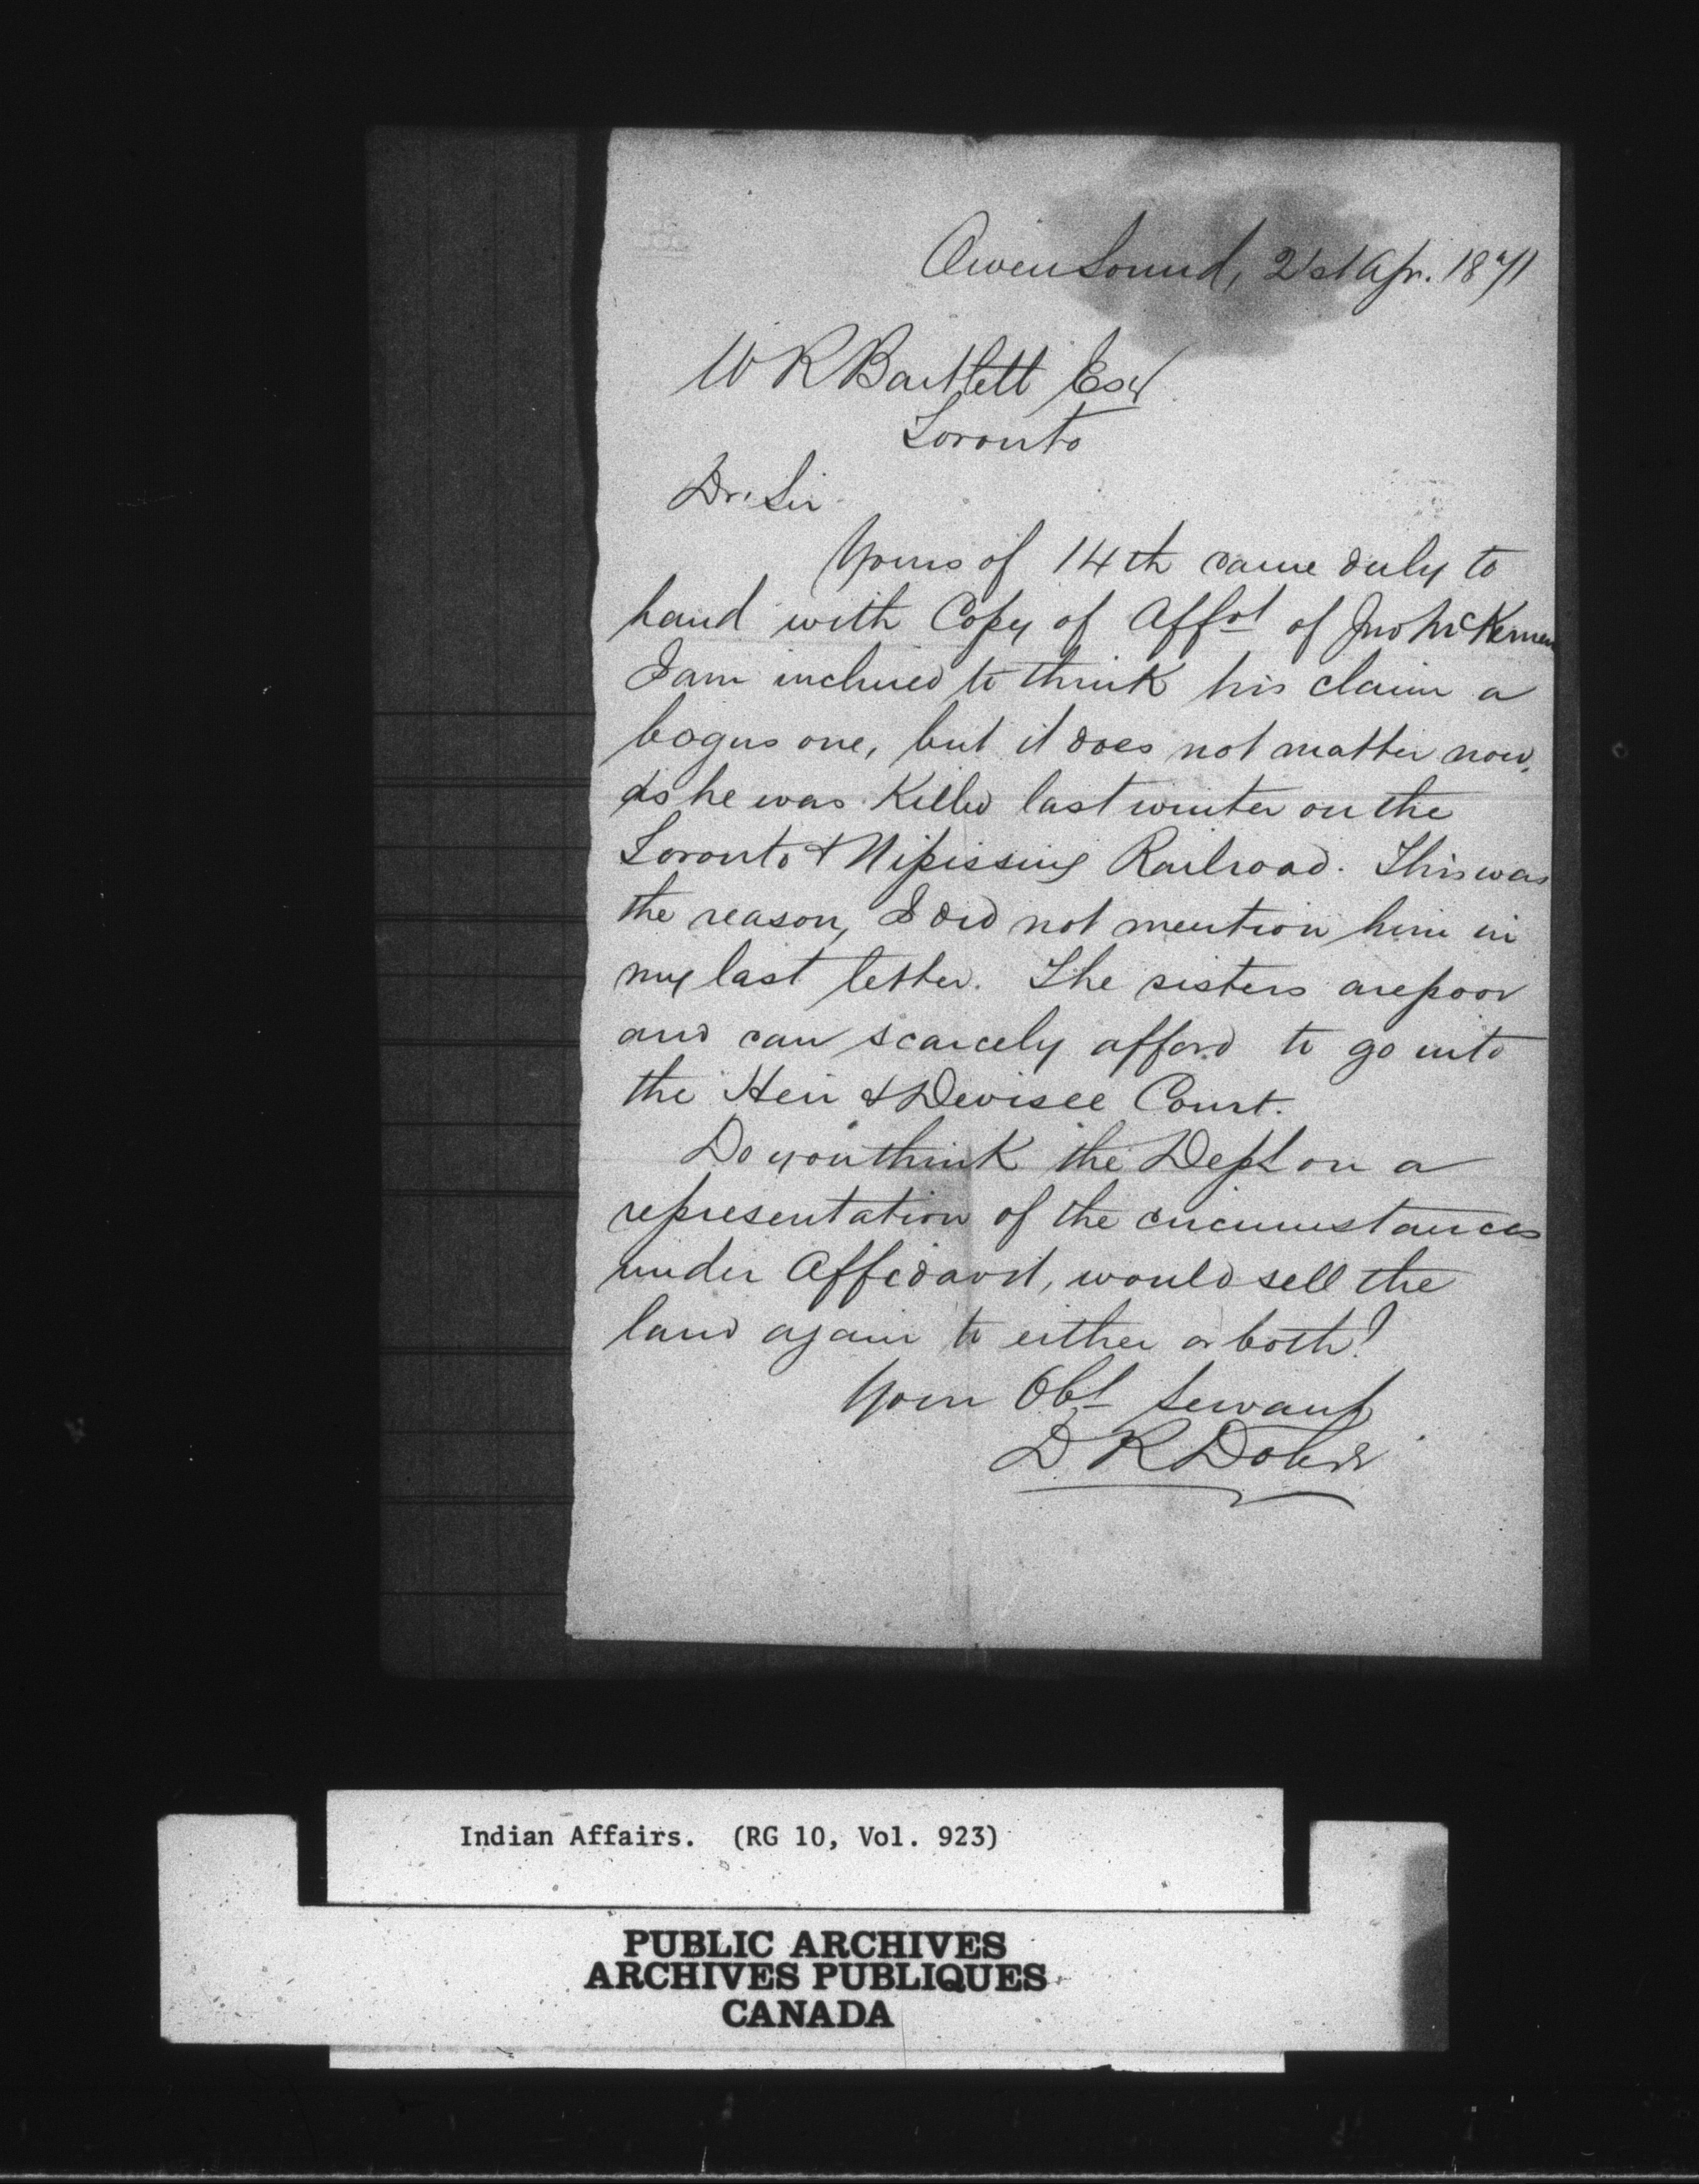 Owen Sound, 21st Apr. 1871
W R Bartlett Esq
Toronto
Dr. Sir
Yours of 14th came duly to
hand with Copy of Affdt of Jno McKernen
I am inclined to think his claim a
bogus one, but it does not matter now,
as he was killed last winter on the
Toronto & Nipissing Railroad. This was
the reason, I did not mention him in
my last letter. The sisters are poor
and can scarcely afford to go into
the Heir & Devisee Court.
Do you think the Dept on a
representation of the circumstances
under Affidavit, would sell the
land again to either or both?
Your Obt Servant
D R Dobie
Indian Affairs. (RG 10, Vol. 923)
PUBLIC ARCHIVES
ARCHIVES PUBLIQUES
CANADA